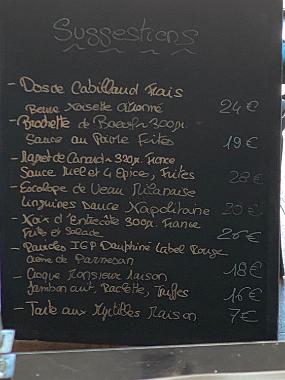 Suggestions
- Dos de Cabillaud Frais
Beurre Noisette citronné 24€
- Brochette de Boeuf 300gr.
Sauce au Poivre Frites 19€
- Magret de Canard 320gr. France
Sauce Miel et 4 Epices, Frites 28€
- Escalope de Veau Milanaise
Linguines Sauce Napolitaine
- Noix d'Entrecôte 300gr. France
Frites et Salade 26€
- Ravioles IGP Dauphiné Label Rouge
Crème de Parmesan 18€
- Croque Monsieur Maison
Jambon cuit, Raclette, Truffes 16€
- Tarte aux Myrtilles Maison 7€